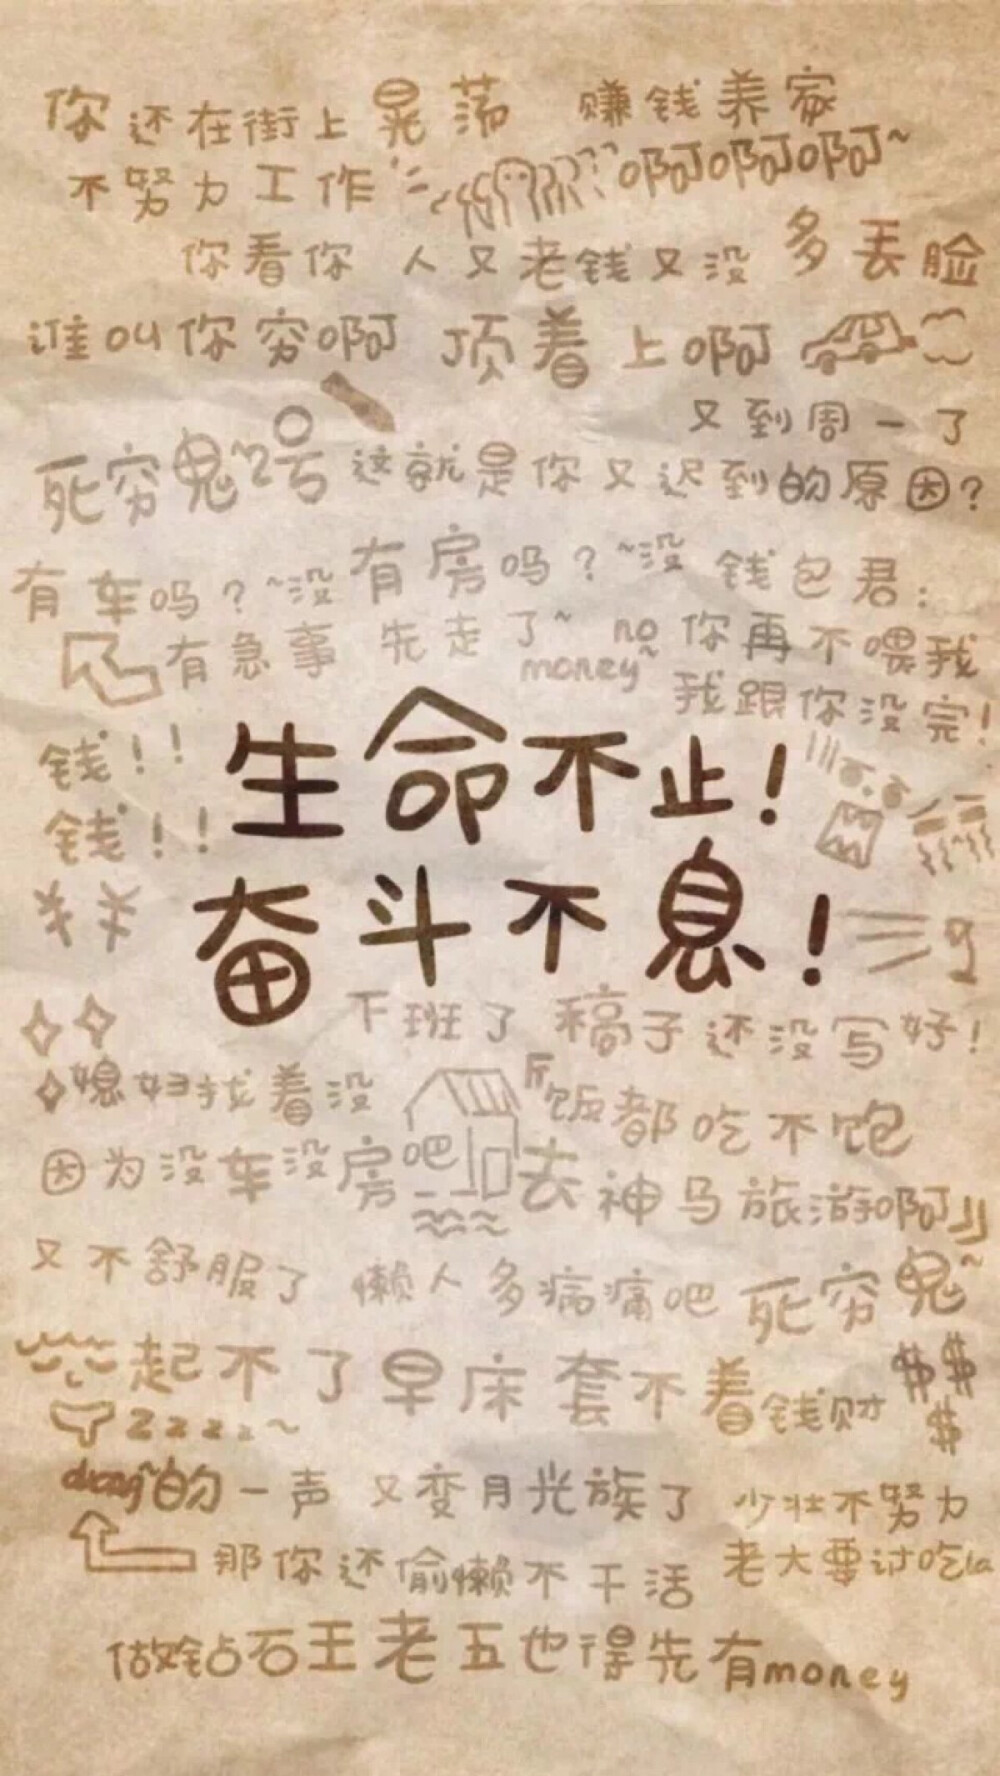 你还在街上晃荡 赚钱养家
不努力工作 啊啊啊~
你看你 人又老钱又没 多丢脸
谁叫你穷啊 顶着上啊
又到周一了
死穷鬼2号 这就是你又迟到的原因?
有车吗?~没有房吗?~没 钱包君:
有急事 先走了~ no money~ 你再不喂我
我跟你没完!
钱!! 生命不止!
钱!!
¥¥ 奋斗不息!
下班了 稿子还没写好!
媳妇找着没 饭都吃不饱
因为没车没房吧 去神马旅游啊
又不舒服了 懒人多病痛吧 死穷鬼~
起不了早床 套不着钱财 $$$
zzzzz~
duang~的一声 又变月光族了 少壮不努力
那你还偷懒不干活 老大要讨吃la
做钻石王老五也得先有money